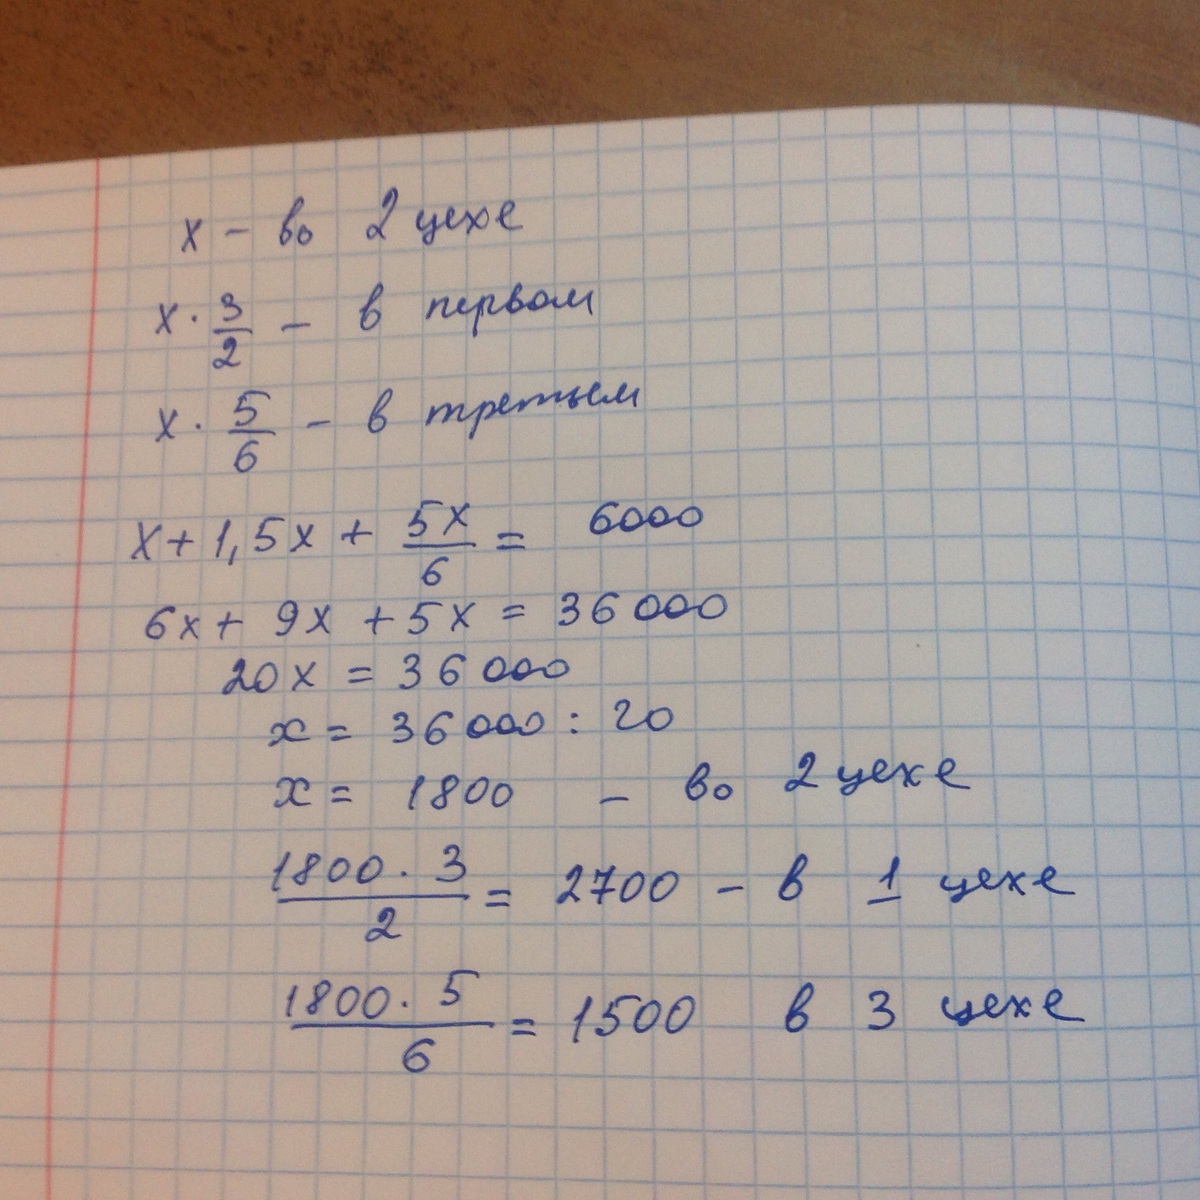 x - во 2 цехе
x · 3/2 - в первом
x · 5/6 - в третьем
x + 1,5x + 5x/6 = 6000
6x + 9x + 5x = 36000
20x = 36000
x = 36000 : 20
x = 1800 - во 2 цехе
1800 · 3/2 = 2700 - в 1 цехе
1800 · 5/6 = 1500 в 3 цехе